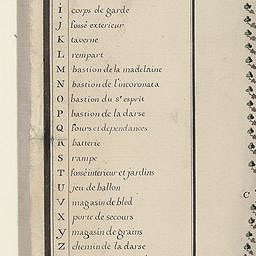 i corps de garde
j fossé exterieur
K taverne
L rempart
M bastion de la madelaine
N bastion de l'incoronata
O bastion du st esprit
P bastion de la darse
Q fours et dependances
R batterie
S rampe
T fossé interieur et jardins
U jeu de ballon
V magasin de bled
X porte de secours
y magasin de grains
Z chemin de la darse
C